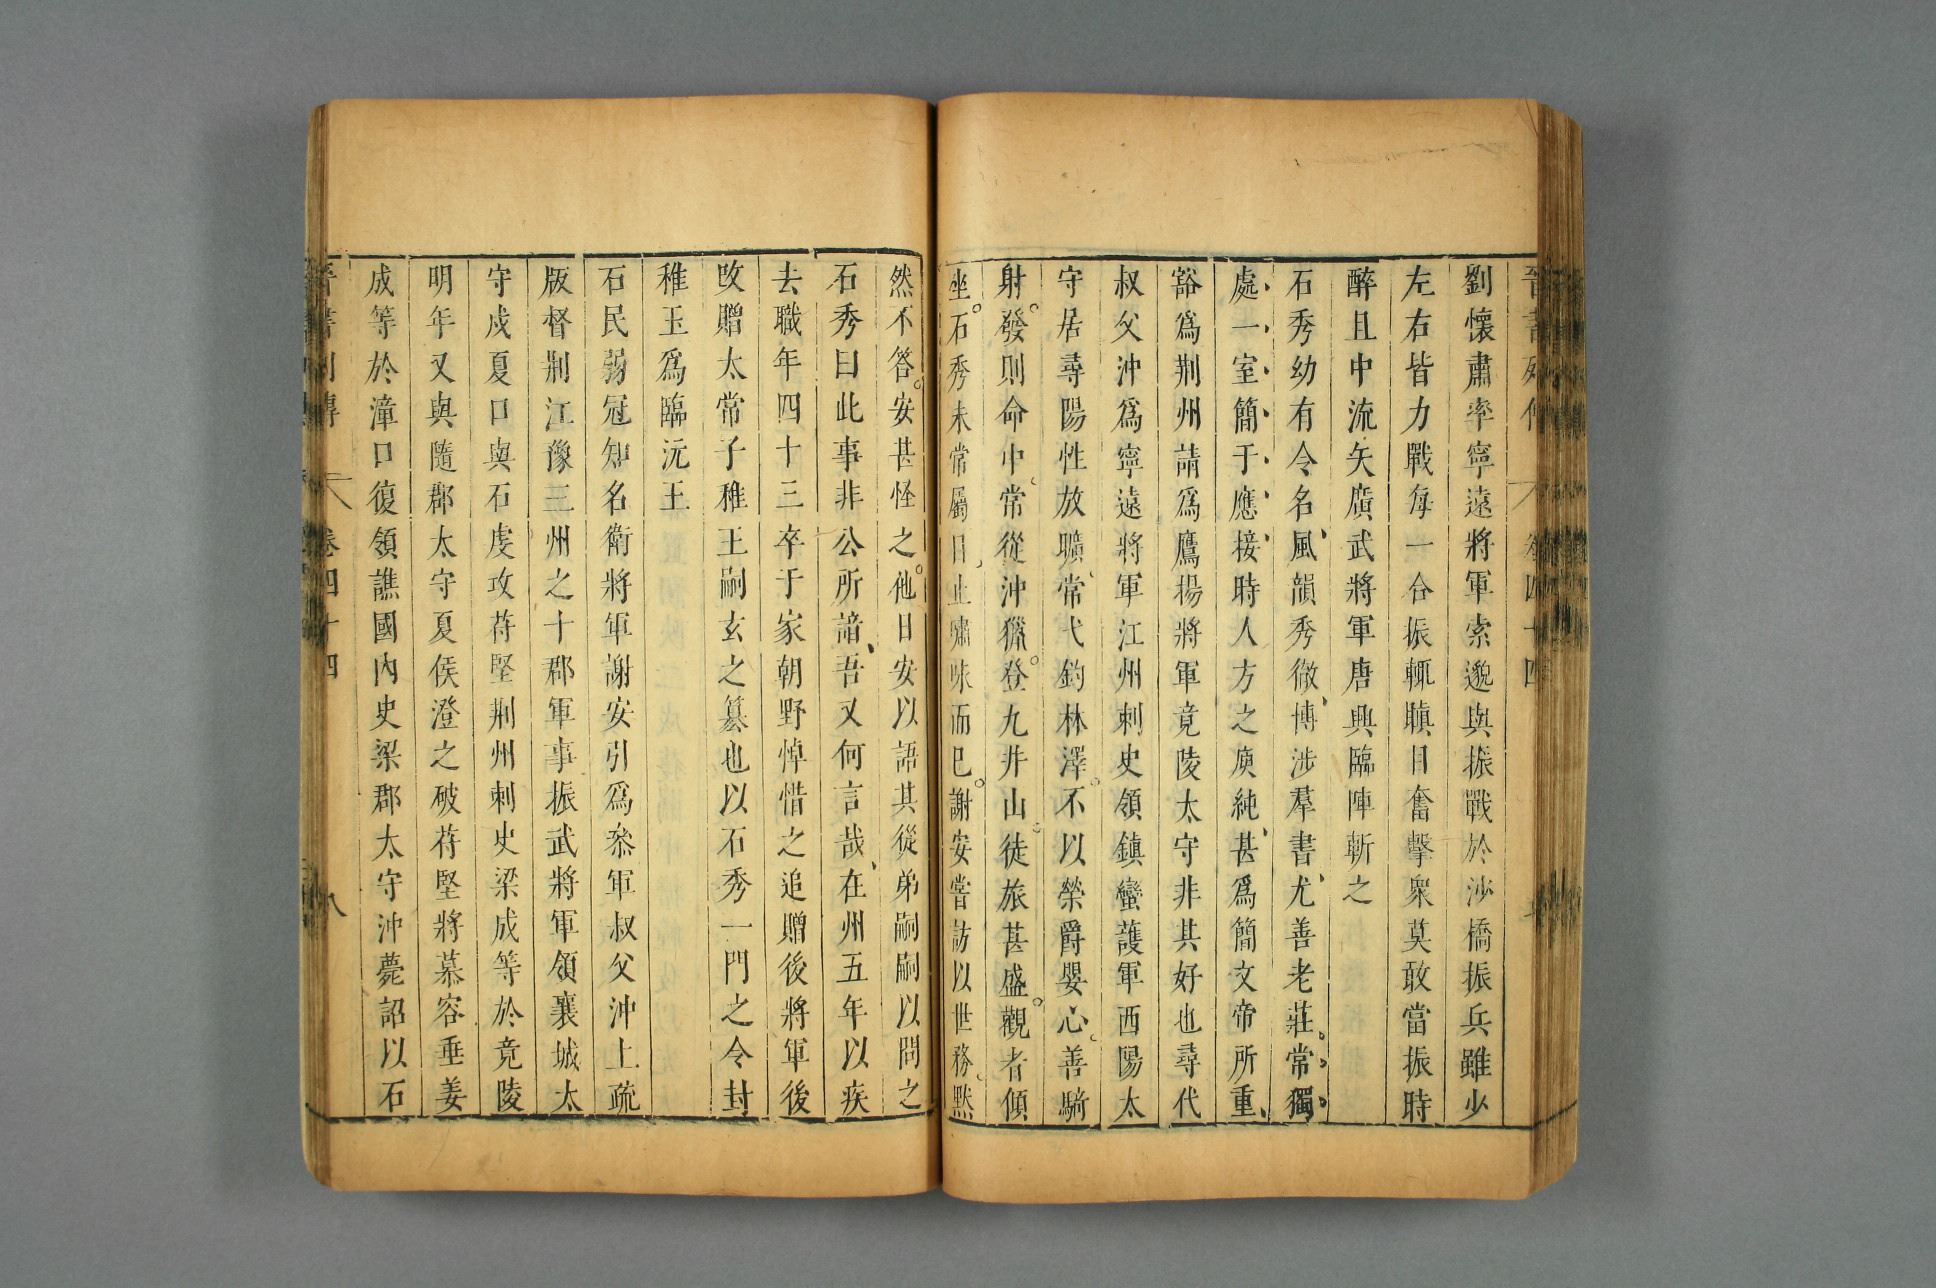 晉書列傳 卷四十四
劉懷肅率寧遠將軍索邈與振戰於沙橋振兵雖少
左右皆力戰每一合振輒瞋目奮擊衆莫敢當振時
醉且中流矢廣武將軍唐興臨陣斬之
石秀幼有令名風韻秀徹博涉羣書尤善老莊常獨
處一室簡于應接時人方之庾純甚爲簡文帝所重
豁爲荆州請爲鷹揚將軍竟陵太守非其好也尋代
叔父沖爲寧遠將軍江州刺史領鎮蠻護軍西陽太
守居尋陽性放曠常弋釣林澤不以榮爵嬰心善騎
射發則命中常從沖獵登九井山徒旅甚盛觀者傾
坐石秀未常屬目止嘯咏而已謝安嘗訪以世務默
然不答安甚怪之他日安以語其從弟嗣嗣以問之
石秀曰此事非公所諳吾又何言哉在州五年以疾
去職年四十三卒于家朝野悼惜之追贈後將軍後
攺贈太常子稚玉嗣玄之簒也以石秀一門之令封
稚玉爲臨沅王
石民弱冠知名衛將軍謝安引爲叅軍叔父沖上疏
版督荆江豫三州之十郡軍事振武將軍領襄城太
守戍夏口與石虔攻苻堅荆州刺史梁成等於竟陵
明年又與隨郡太守夏侯澄之破苻堅將慕容垂姜
成等於漳口復領譙國內史梁郡太守沖薨詔以石
晉書列傳 卷四十四 八